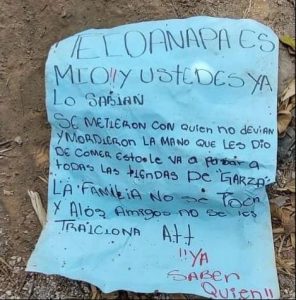 TECOANAPA ES
MIO!! Y USTEDES YA
LO SABIAN
SE METIERON CON QUIEN NO DEVIAN
Y MORDIERON LA MANO QUE LES DIO
DE COMER ESTO LE VA A PASAR A
TODAS LAS TIENDAS DE "GARZA"
LA FAMILIA NO SE TOCA
Y ALOS AMIGOS NO SE LES
TRAICIONA ATT
!!YA
SABEN
QUIEN!!